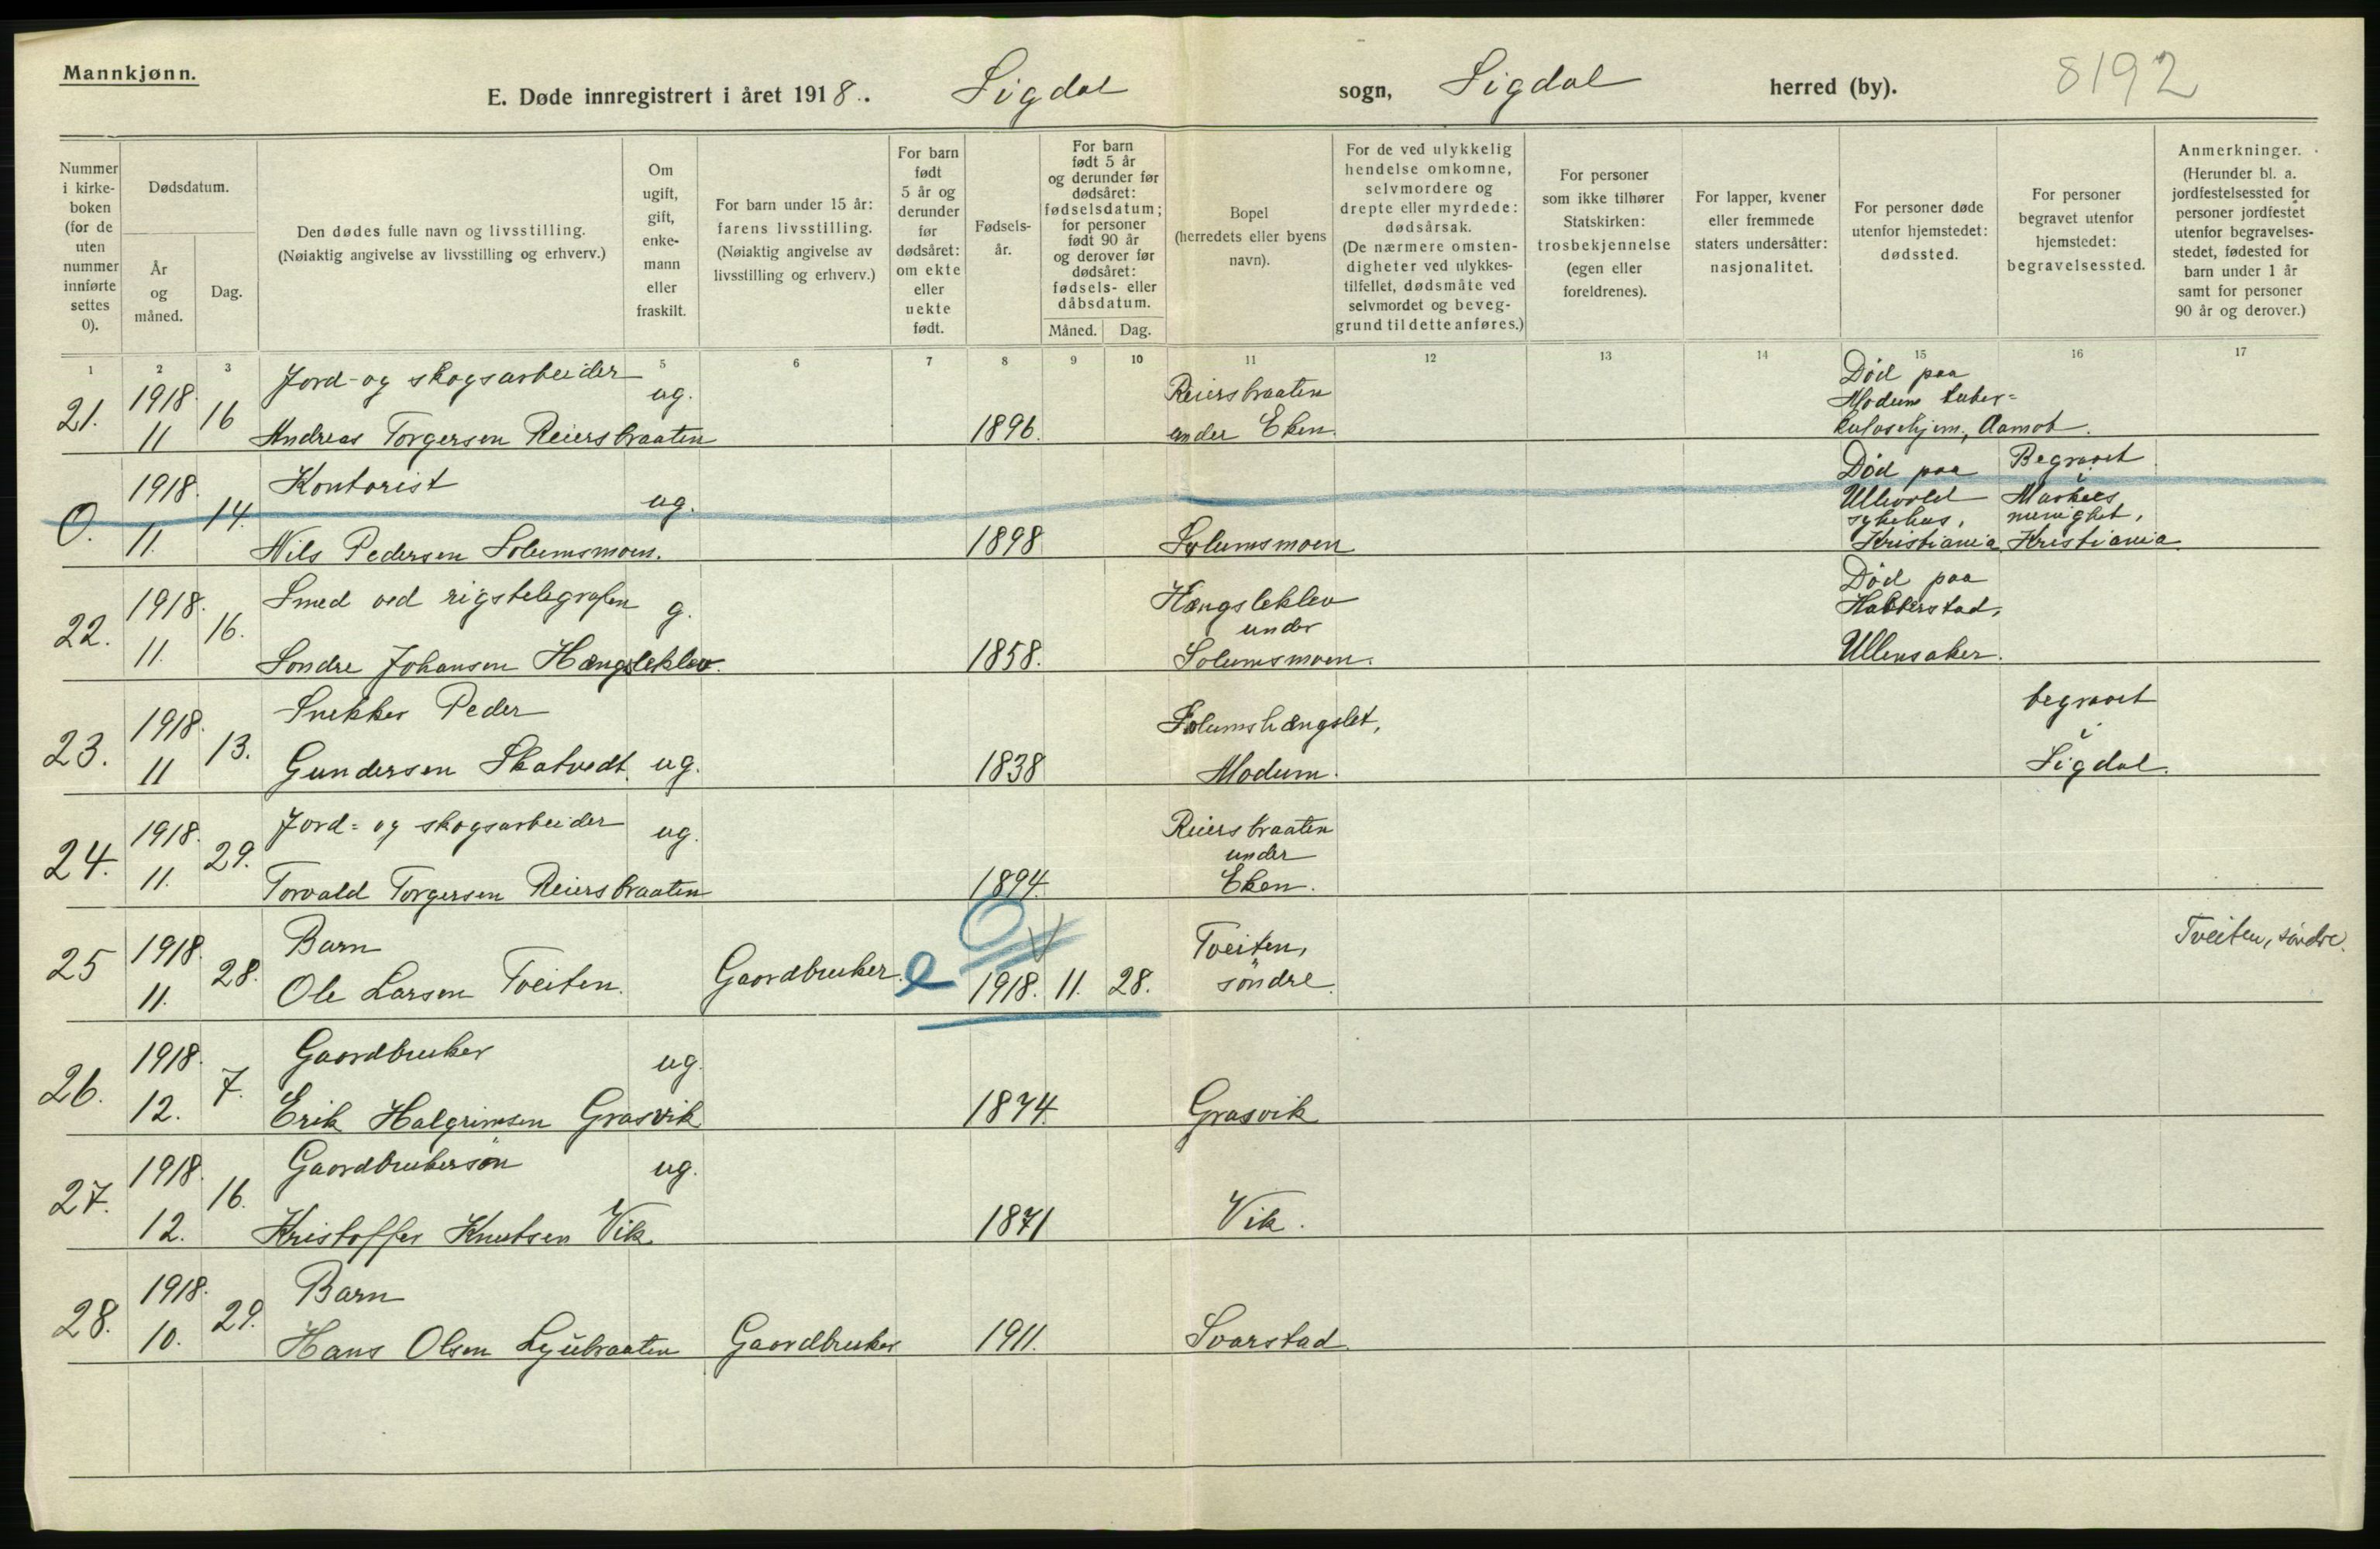 Mannkjønn.
E. Døde innregistrert i året 1918. Sigdal sogn, Sigdal herred (by). 8192
Nummer i kirke-boken (for de uten nummer innførte settes 0).
Dødsdatum.
År og måned.
Dag.
Den dødes fulle navn og livsstilling.
(Nøiaktig angivelse av livsstilling og erhverv.)
Om ugift, gift, enke-mann eller fraskilt.
For barn under 15 år: farens livsstilling.
(Nøiaktig angivelse av livsstilling og erhverv.)
For barn født 5 år og derunder før dødsåret: om ekte eller uekte født.
Fødsels-år.
For barn født 5 år og derunder før dødsåret: fødselsdatum; for personer født 90 år og derover før dødsåret: fødsels- eller dåbsdatum.
Måned. Dag.
Bopel (herredets eller byens navn).
For de ved ulykkelig hendelse omkomne, selvmordere og drepte eller myrdede: dødsårsak.
(De nærmere omsten-digheter ved ulykkes-tilfellet, dødsmåte ved selvmordet og beveg-grund til dette anføres.)
For personer som ikke tilhører Statskirken: trosbekjennelse (egen eller foreldrenes).
For lapper, kvener eller fremmede staters undersåtter: nasjonalitet.
For personer døde utenfor hjemstedet: dødssted.
For personer begravet utenfor hjemstedet: begravelsessted.
Anmerkninger.
(Herunder bl. a. jordfestelsessted for personer jordfestet utenfor begravelses-stedet, fødested for barn under 1 år samt for personer 90 år og derover.)
1 2 3 5 6 7 8 9 10 11 12 13 14 15 16 17
21. 1918. 11 16 Jord- og skogsarbeider ug.
Andreas Torgersen Reiersbraaten 1896. Reiersbraaten under Eken. Død paa Modum tuber=kulosehjem, Aamot.
0. 1918. 11. 14. Kontorist ug.
Nils Pedersen Solumsmoen. 1898 Solumsmoen Død paa Ullevold sykehus, Kristiania. Begravet i Markus menighet, Kristiania.
22. 1918. 11. 16. Smed ved rigstelegrafen g.
Sondre Johansen Hængsleklev. 1858. Hængsleklev under Solumsmoen. Død paa Ullensaker.
23. 1918. 11 13. Snekker Peder
Gundersen Skatvedt. ug. 1838 Solumshængslet, Modum. begravet i Sigdal.
24. 1918. 11. 29. Jord= og skogsarbeider ug.
Torvald Torgersen Reiersbraaten 1894. Reiersbraaten under Eken.
25 1918. 11. 28. Barn
Ole Larsen Tveiten. Gaardbruker. e 1918. 11. 28. Tveiten, søndre. Tveiten, søndre.
26. 1918. 12. 7. Gaardbruker ug.
Erik Halgrimsen Grasvik 1874. Grasvik
27. 1918. 12. 16. Gaardbrukersøn ug.
Kristoffer Knutsen Vik 1871 Vik.
28. 1918. 10. 29. Barn
Hans Olsen Lyubraaten Gaardbruker 1911. Svarstad.